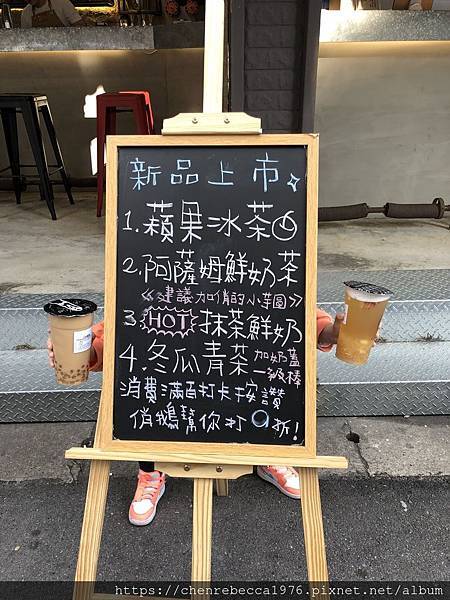 新品上市
1.蘋果冰茶
2.阿薩姆鮮奶茶
《建議加俏的小芋圓》
3.HOT抹茶鮮奶
4.冬瓜青茶加奶蓋
一級棒
消費滿百打卡按讚
俏鵝幫你打 折!
https://chenrebecca1976.pixnet.net/album